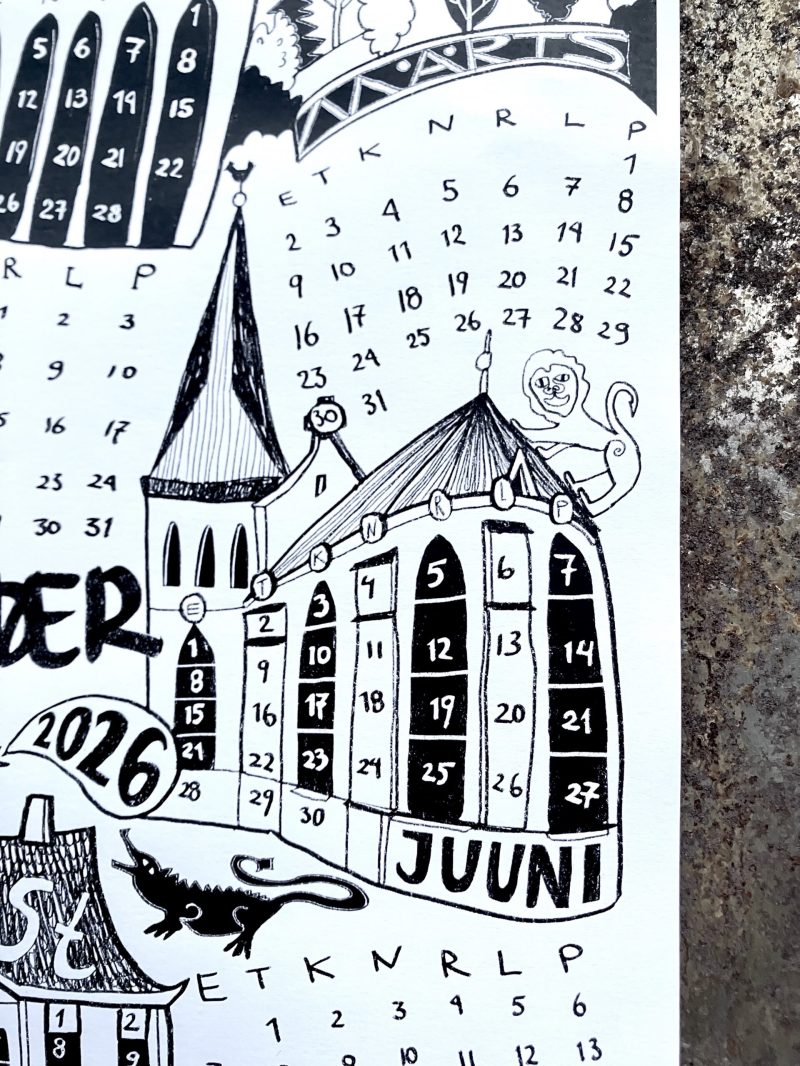 1
5 6 7 8
12 13 14 15
19 20 21 22
26 27 28
MÄRTS
E T K N R L P
1
2 3 4 5 6 7 8
9 10 11 12 13 14 15
16 17 18 19 20 21 22
23 24 25 26 27 28 29
30 31
R L P
2 3
9 10
16 17
23 24
30 31
DER
2026
E T K N R L P
1 2 3 4 5 6 7
8 9 10 11 12 13 14
15 16 17 18 19 20 21
21 22 23 24 25 26 27
28 29 30
JUUNI
St
1 2
8 9
E T K N R L P
1 2 3 4 5 6
8 9 10 11 12 13